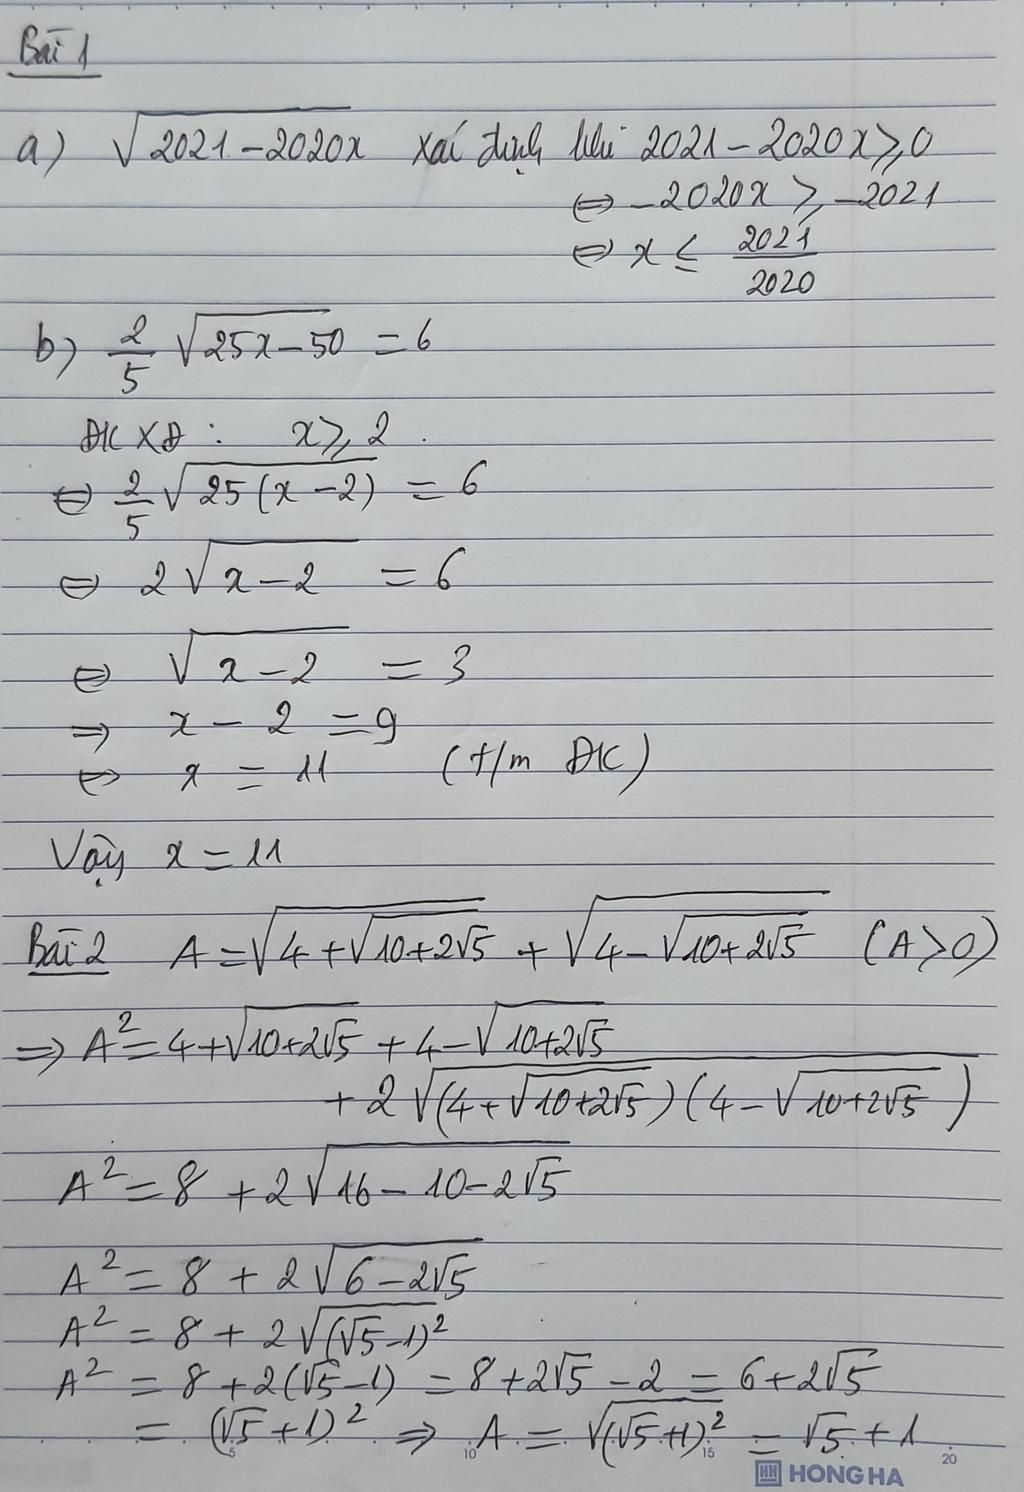 Bài 1
a) √(2021-2020x) xác định khi 2021-2020x ⩾ 0
⇔ -2020x ⩾ -2021
⇔ x ≤ 2021/2020
b) 2/5 √(25x-50) = 6
ĐKXĐ: x ⩾ 2.
⇔ 2/5 √(25(x-2)) = 6
⇔ 2√(x-2) = 6
⇔ √(x-2) = 3
⇒ x - 2 = 9
⇔ x = 11 (t/m ĐK)
Vậy x = 11
Bài 2 A = √(4+√(10+2√5)) + √(4-√(10+2√5)) (A>0)
⇒ A² = 4+√(10+2√5) + 4-√(10+2√5)
+ 2√((4+√(10+2√5))(4-√(10+2√5)))
A² = 8 + 2√(16-10-2√5)
A² = 8 + 2√(6-2√5)
A² = 8 + 2√((√5-1)²)
A² = 8+2(√5-1) = 8+2√5-2 = 6+2√5
= (√5+1)² ⇒ A = √((√5+1)²) = √5+1
5 10 15 20
HH HONG HA